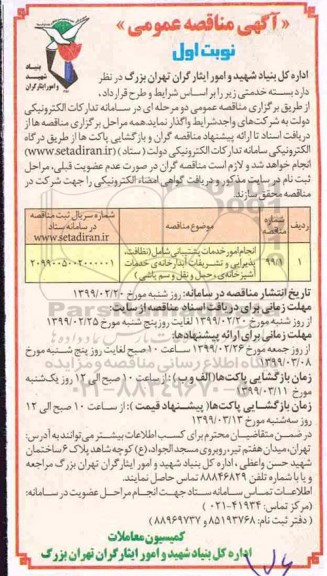 «آگهی مناقصه عمومی»
نوبت اول
بنیاد شهید
و امور ایثارگران
اداره کل بنیاد شهید و امور ایثارگران تهران بزرگ در نظر
دارد بسته خدمتی زیر را بر اساس شرایط و طرح قرارداد،
از طریق برگزاری مناقصه عمومی دو مرحله ای در سامانه تدارکات الکترونیکی
دولت به شرکت های واجد شرایط واگذار نماید. همه مراحل برگزاری مناقصه ها از
دریافت اسناد تا ارائه پیشنهاد مناقصه گران و بازگشایی پاکت ها از طریق درگاه
الکترونیکی سامانه تدارکات الکترونیکی دولت (ستاد) (www.setadiran.ir)
انجام خواهد شد و لازم است مناقصه گران در صورت عدم عضویت قبلی، مراحل
ثبت نام در سایت مذکور و دریافت گواهی امضاء الکترونیکی را جهت شرکت در
مناقصه محقق سازند.
ردیف شماره مناقصه موضوع مناقصه شماره سریال ثبت مناقصه در سامانه ستاد www.setadiran.ir
۱ ۹۹/۱ انجام امور خدمات پشتیبانی شامل (نظافت، پذیرایی و تشریفات آبدارخانه ی خدمات آشپزخانه ی، حمل و نقل و سم پاشی) ۲۰۹۹۰۰۵۰۰۲۰۰۰۰۰۱
تاریخ انتشار مناقصه در سامانه: روز شنبه مورخ ۱۳۹۹/۰۲/۲۰
مهلت زمانی برای دریافت اسناد مناقصه از سایت:
از روز شنبه مورخ ۱۳۹۹/۰۲/۲۰ لغایت روز پنج شنبه مورخ ۱۳۹۹/۰۲/۲۵
مهلت زمانی برای ارائه پیشنهادها:
از روز جمعه مورخ ۱۳۹۹/۰۲/۲۶ ساعت ۱۰ صبح لغایت روز پنج شنبه مورخ
۱۳۹۹/۰۳/۰۸
زمان بازگشایی پاکت ها (الف و ب): از ساعت ۱۰ صبح الی ۱۲ روز یک شنبه
مورخ ۱۳۹۹/۰۳/۱۱
زمان بازگشایی پاکت ها (پیشنهاد قیمت): از ساعت ۱۰ صبح الی ۱۲
روز سه شنبه مورخ ۱۳۹۹/۰۳/۱۳
در ضمن متقاضیان محترم برای کسب اطلاعات بیشتر می توانند به آدرس:
تهران، میدان هفتم تیر، روبروی مسجد الجواد(ع) کوچه شاهد پلاک ۶ ساختمان
شهید حسن واعظی، اداره کل بنیاد شهید و امور ایثارگران تهران بزرگ مراجعه
و یا با شماره تلفن ۸۸۸۴۶۸۲۹ تماس حاصل نمایند.
اطلاعات تماس سامانه ستاد جهت انجام مراحل عضویت در سامانه:
(مرکز تماس: ۴۱۹۳۴-۰۲۱)
(دفتر ثبت نام: ۸۵۱۹۳۷۶۸ و ۸۸۹۶۹۷۳۷)
کمیسیون معاملات
اداره کل بنیاد شهید و امور ایثارگران تهران بزرگ